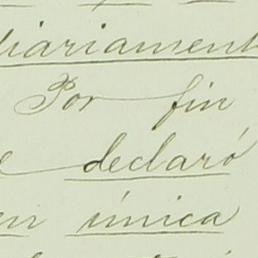 diariament
Por fin
e declaró
en única